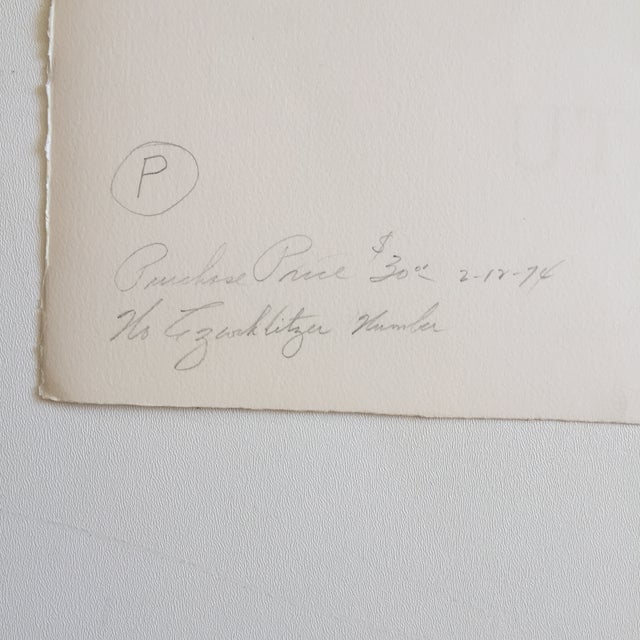 P
Purchase Price $30.00 2-12-74
No Czwiklitzer Number